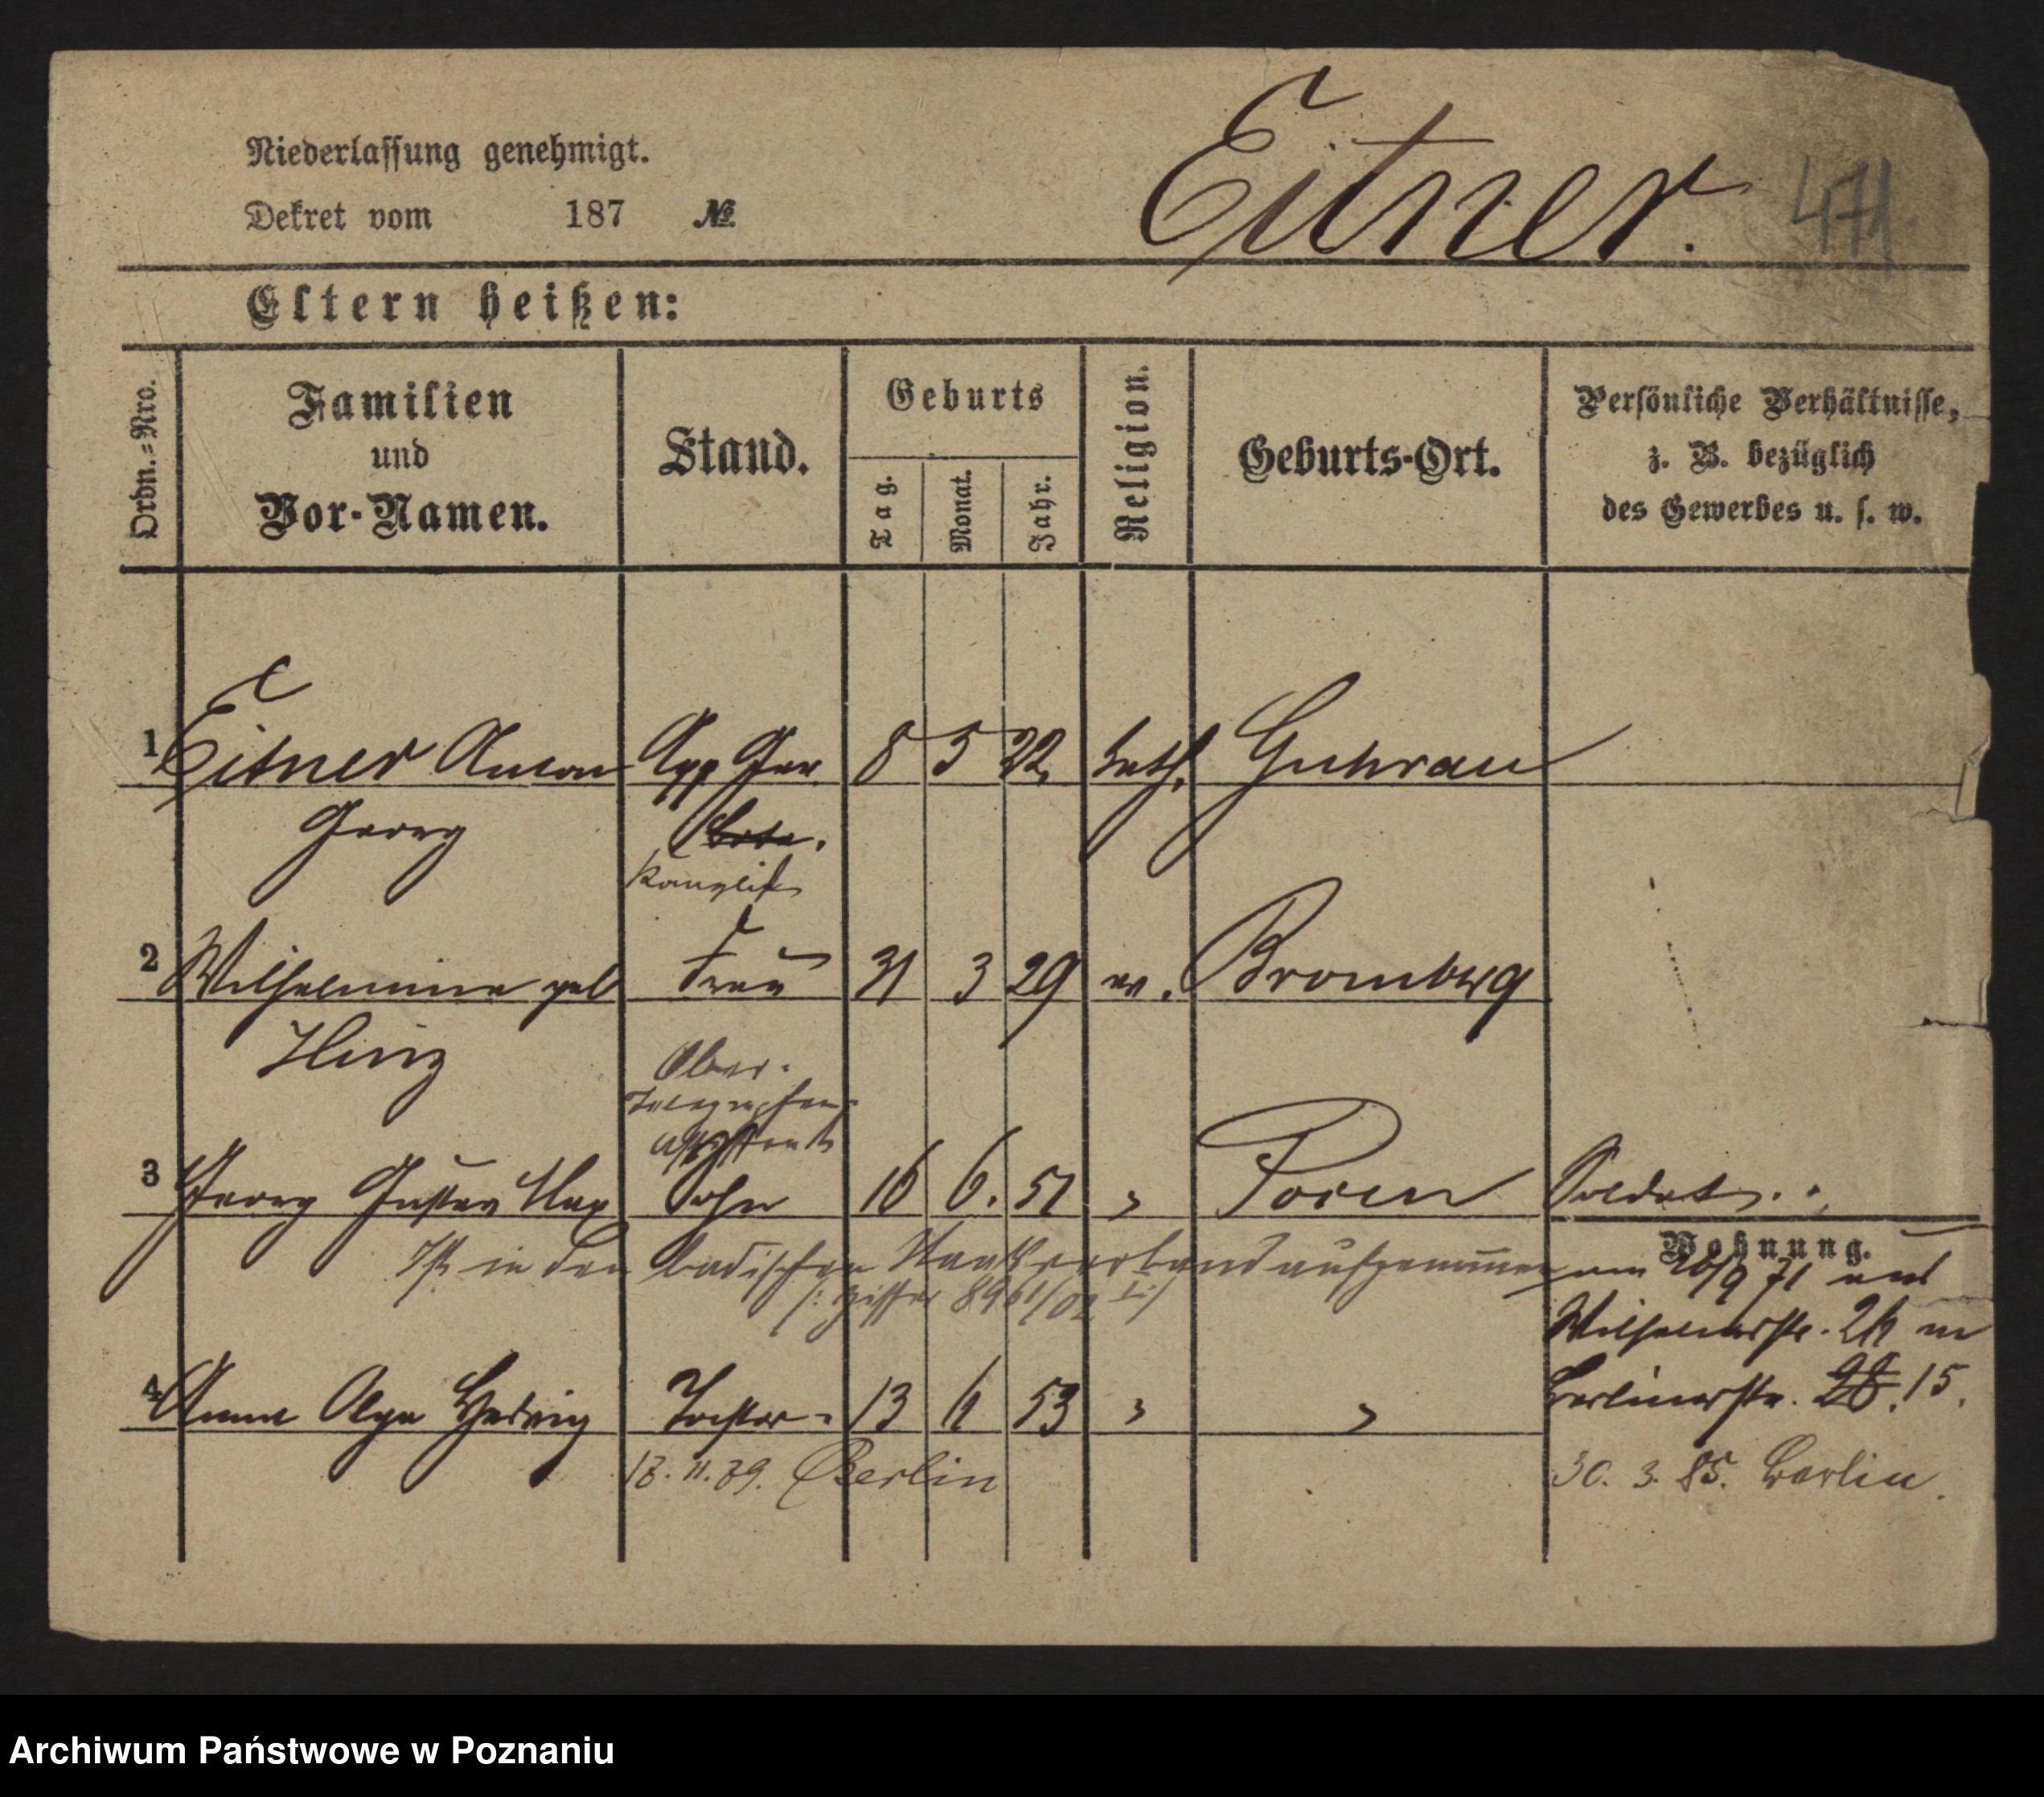 Niederlassung genehmigt.
Dekret vom 187 №
Eitner. 471
Eltern heißen:
Ordn.=Nro.
Familien
und
Vor-Namen.
Stand.
Geburts
Tag.
Monat.
Jahr.
Religion.
Geburts-Ort.
Persönliche Verhältnisse,
z. B. bezüglich
des Gewerbes u. s. w.
1 Eitner Anton App Ger 8 5 22 kath. Guhrau
Georg Bote.
Kanzlist
2 Wilhelmine geb Frau 31 3 29 ev. Bromberg
Hinz
Ober-
Telegraphen-
assistent
3 Georg Gustav Max Sohn 16 6. 51 " Posen Soldat.
Wohnung.
Ist in den badischen Staatsverband aufgenommen
am 26/9 71 aus
Wilhelmsstr. 26 in
4 Anna Olga Hedwig Tochter- 13 6 53 " " Berlinerstr. 28. 15.
18. 11. 89. Berlin 30. 3. 85. Berlin.
Archiwum Państwowe w Poznaniu